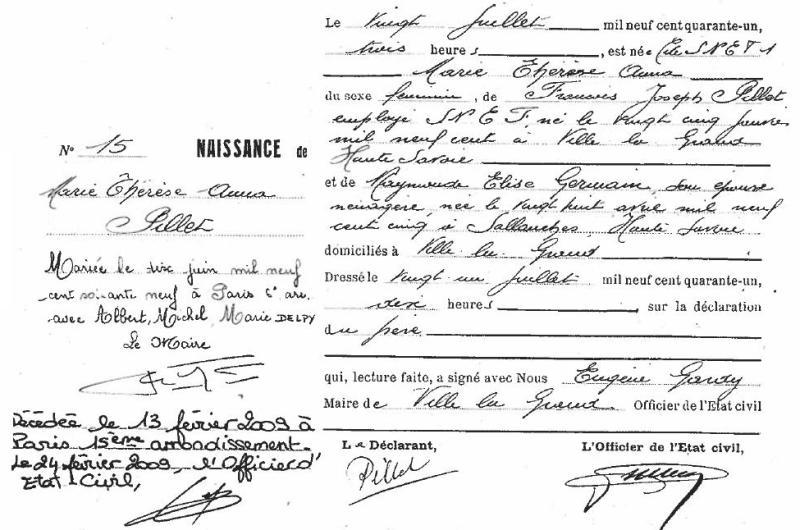 N° 15 NAISSANCE de
Marie Thérèse Anna
Pillet
Mariée le dix juin mil neuf
cent soixante neuf à Paris 6e arr.
avec Albert, Michel Marie DELPY
Le Maire
Décédée le 13 février 2009 à
Paris 15ème arrondissement.
Le 24 février 2009, l'Officier d'
Etat-Civil,
Le vingt Juillet mil neuf cent quarante-un,
trois heures, est née
Marie Thérèse Anna
du sexe féminin, de Francois Joseph Pillet
employé S.N.E.T. né le vingt cinq janvier
mil neuf cent à Ville la Grand
Haute Savoie
et de Raymonde Elise Germain, son épouse
ménagère, née le vingt huit avril mil neuf
cent cinq à Sallanches, Haute Savoie
domiciliés à Ville la Grand
Dressé le vingt un juillet mil neuf cent quarante-un,
dix heures sur la déclaration
du père
qui, lecture faite, a signé avec Nous Eugène Gavty
Maire de Ville la Grand Officier de l'Etat civil
Le Déclarant, L'Officier de l'Etat civil,
Pillet